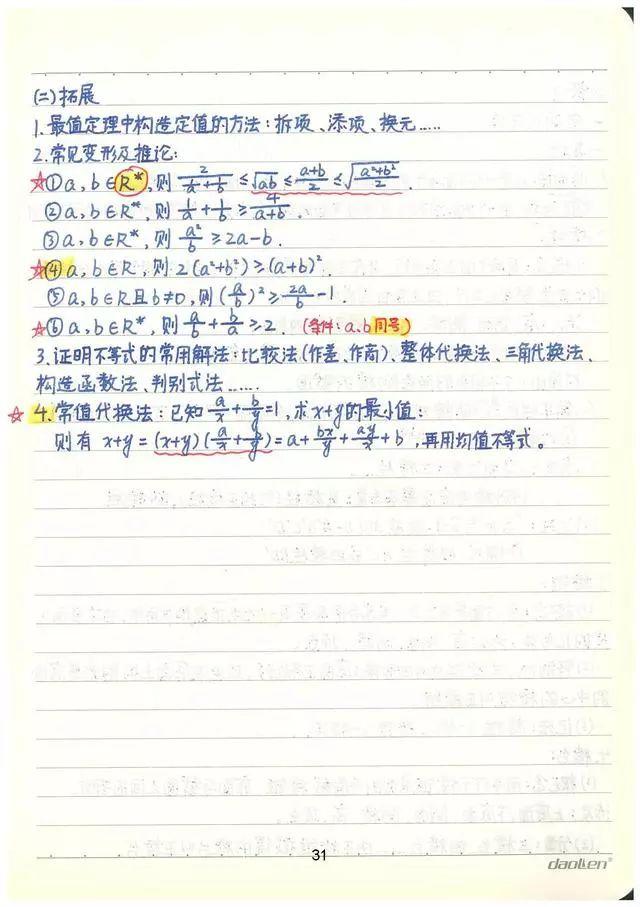 (二)拓展
1.最值定理中构造定值的方法:拆项、添项、换元……
2.常见变形及推论:
☆①a,b∈R*,则 2/(1/a+1/b) ≤ √ab ≤ (a+b)/2 ≤ √((a²+b²)/2).
②a,b∈R*,则 1/a+1/b ≥ 4/(a+b).
③a,b∈R*,则 a²/b ≥2a-b.
☆④a,b∈R,则 2(a²+b²)≥(a+b)².
⑤a,b∈R且b≠0,则(a/b)²≥2a/b-1.
☆⑥a,b∈R*,则 a/b+b/a≥2. (条件:a,b同号)
3.证明不等式的常用解法:比较法(作差、作商)、整体代换法、三角代换法、
构造函数法、判别式法……
☆4.常值代换法:已知 a/x+b/y=1,求x+y的最小值:
则有 x+y=(x+y)(a/x+b/y)=a+bx/y+ay/x+b,再用均值不等式。
31
daolen®